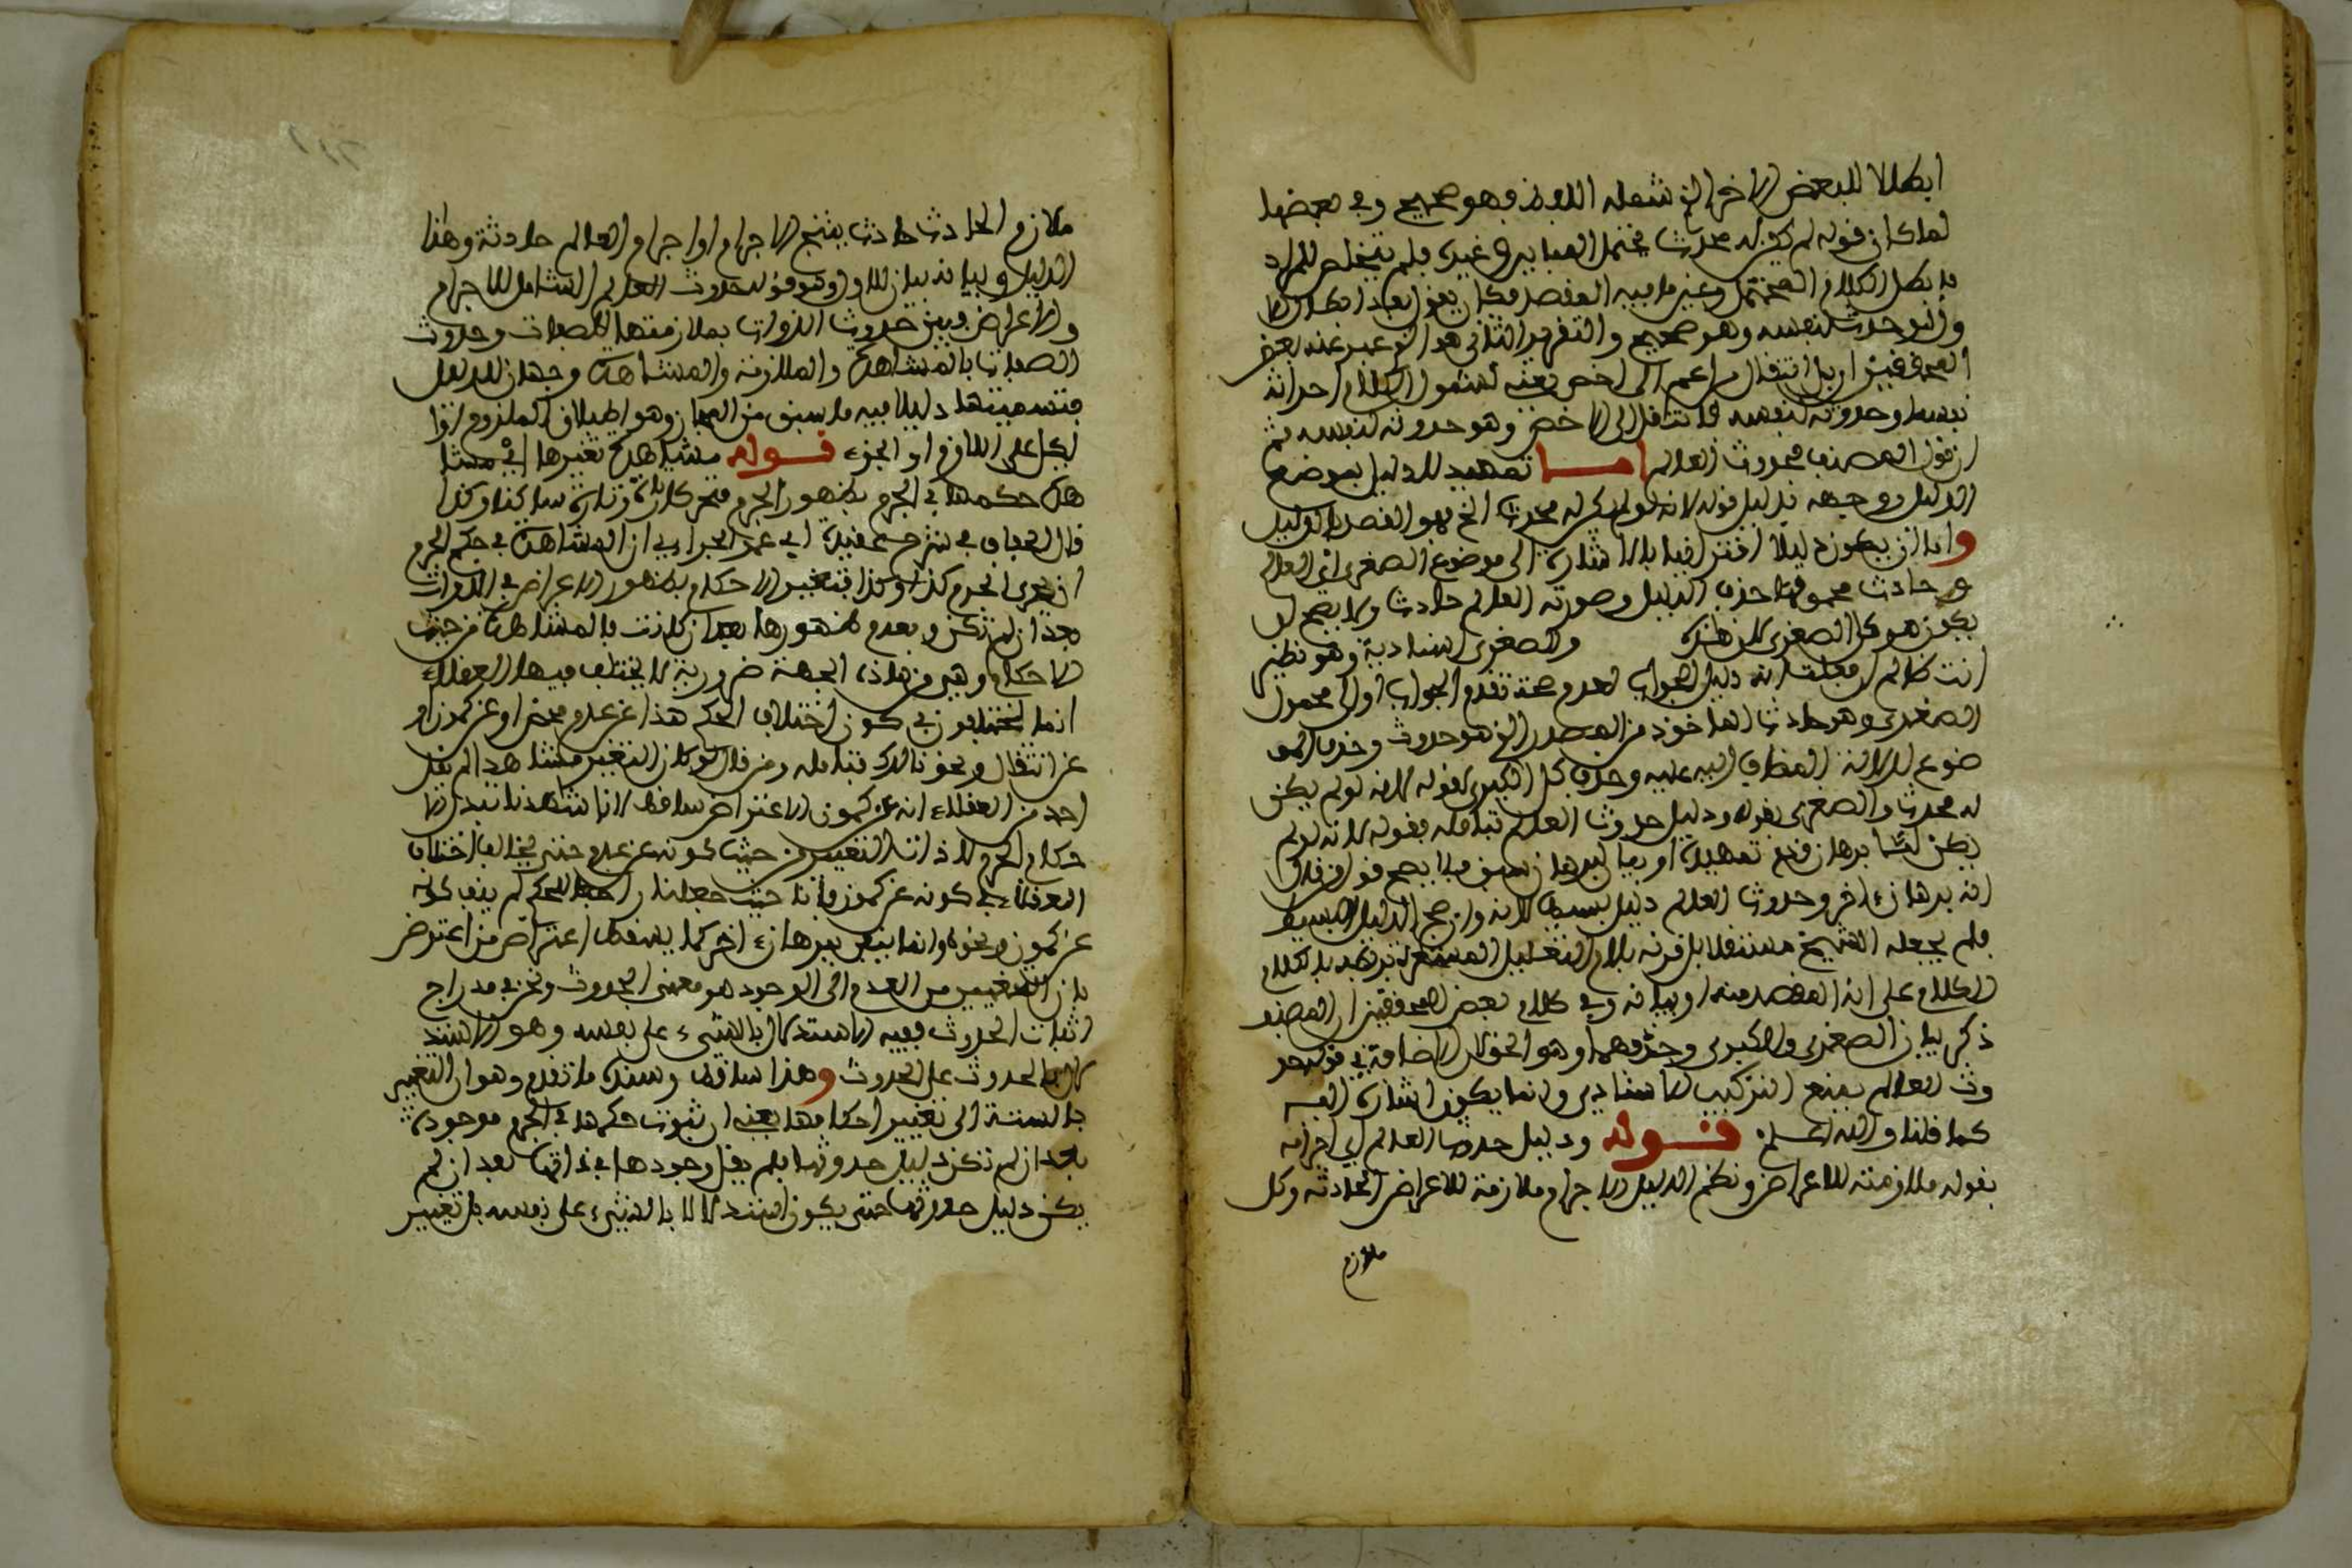 ابطالا للبعض الاخر الذي شمله اللفظ وهو صحيح وفي بعضها
لما كان قوله لم يكن له محدث محتمل المباين في غيره فلم يتخلص للمراد
فابطل الكلام المحتمل وعين ما فيه المقصد فكان يقول بعد ابطال الا
ول بل حدث بنفسه وهو صحيح والتقرير الثاني هو الذي عبر عنه بعض
المحققين اي بل انتقال من اعم الى اخص يعني لشمول الكلام احداثه
نفسه وحدوثه لنفسه فانتقل الى الاخص وهو حدوثه لنفسه ثم
ان قول المصنف محدوث العالم اما تمهيد للدليل بموضع
الدليل ووجهه بدليل قوله لانه لو لم يكن له محدث الخ فهو القصد بالدليل
واما ان يكون دليلا اقترانيا بالاشارة الى موضوع الصغرى اي العالم
حادث محمولها حذف الدليل وصورته العالم حادث ولا يصح ان
يكون هو كل الصغرى لان هذه والصغرى اسنادية وهو نظير
انت ظالم ان فعلت انه دليل الجواب لعدم صحة تقدم الجواب او الى محمول
الصغرى وهو حادث الماخوذ من المصدر الذي هو حدوث وحذف المو
ضوع لدلالة المضاف اليه عليه وحذف كل الكبرى لقوله لانه لو لم يكن
له محدث والصغرى بقوله ودليل حدوث العالم تامله بقوله لانه لو لم
يكن لها برهان وقع تمهيده او بيا لبرهان سبق فلا يصح قول من قال
انه برهان اخر وحدوث العالم دليل بسيط لانه وان صح الدليل البسيط
فلم يجعله الشيخ مستقلا بل قرنه بلام التعليل المشعرة بربطه بالكلام
الكلام على انه المقصد منه او بيانه وفي كلام بعض المحققين ان المصنف
ذكر بيان الصغرى والكبرى وحذفهما وهو الحق لان الاضافة في قوله حد
وث العالم بمنع التركيب الاسنادي وانما يكون اشارة اليه
كما قلنا والله اعلم قوله ودليل حدوث العالم اي اجرامه
بقوله ملازمته للاعراض ونظم الدليل الاجرام ملازمة للاعراض الحادثة وكل
ملازم
ملازم الحادث حادث ينتج الاجرام او اجرام العالم حادثة وهذا
الدليل وبيانه بيان للاول وهو قوله حدوث العالم الشامل للاجرام
والاعراض وبين حدوث الذوات بملازمتها للصفات وحدوث
الصفات بالمشاهدة والملازمة والمشاهدة وجهان للدليل
فتسميتها دليلا فيه ما سبق من المجاز وهو اطلاق الملزوم او ا
لكل على اللازم او الجزء قوله مشاهدة تغيرها اي مشا
هدة حكمها في الجرم بظهور الجرم متحركا تارة وتارة ساكنا وكذا
قال الخفاف في شرح عقيدة ابي عمر الجراري ان المشاهدة في حكم الجرم
ان يعرى الجرم كذا وكذا فتغير الاحكام بظهور الاعراض في الذوات
بعد ان لم تكن وبعدم ظهورها بعد ان كانت بالمشاهدة من حيث
الاحكام وهي من هاذه الجهة ضرورية لا يختلف فيها العقلاء
انما يختلفون في كون اختلاف الحكم هذا عن عدم محض او عن كمون او
عن انتقال ونحو ذالك فتامله ومن قال لو كان التغير مشاهدا لم يقل
احد من العقلاء انه عن كمون الاعتراض ساقط لانا شاهدنا تبدل الا
حكام الجرم لا ذات التغير من حيث كونه عن عدم حتى يخالف اختلاف
العقلاء في كونه عن كمون فانا حيث جعلنا الحكم لم ينف كونه
عن كمون ونحوه وانما ينفى ببرهان اخر كما يسقط اعتراض من اعترض
بان التغيير من العدم الى الوجود هو معنى الحدوث ونحن في مدراج
اثبات الحدوث ففيه الاستدلال بالشيء على نفسه وهو الاستد
لال بالحدوث على الحدوث وهذا ساقط وسنده ما تقدم وهو ان التغير
بالنسبة الى تغيير احكامها يعني ان ثبوت حكمها في الجرم موجودة
بعد ان لم تكن دليل حدوثها فلم يقل وجودها في ذاتها بعد ان لم
يكن دليل حدوثها حتى يكون استدلالا بالشيء على نفسه بل تغيير